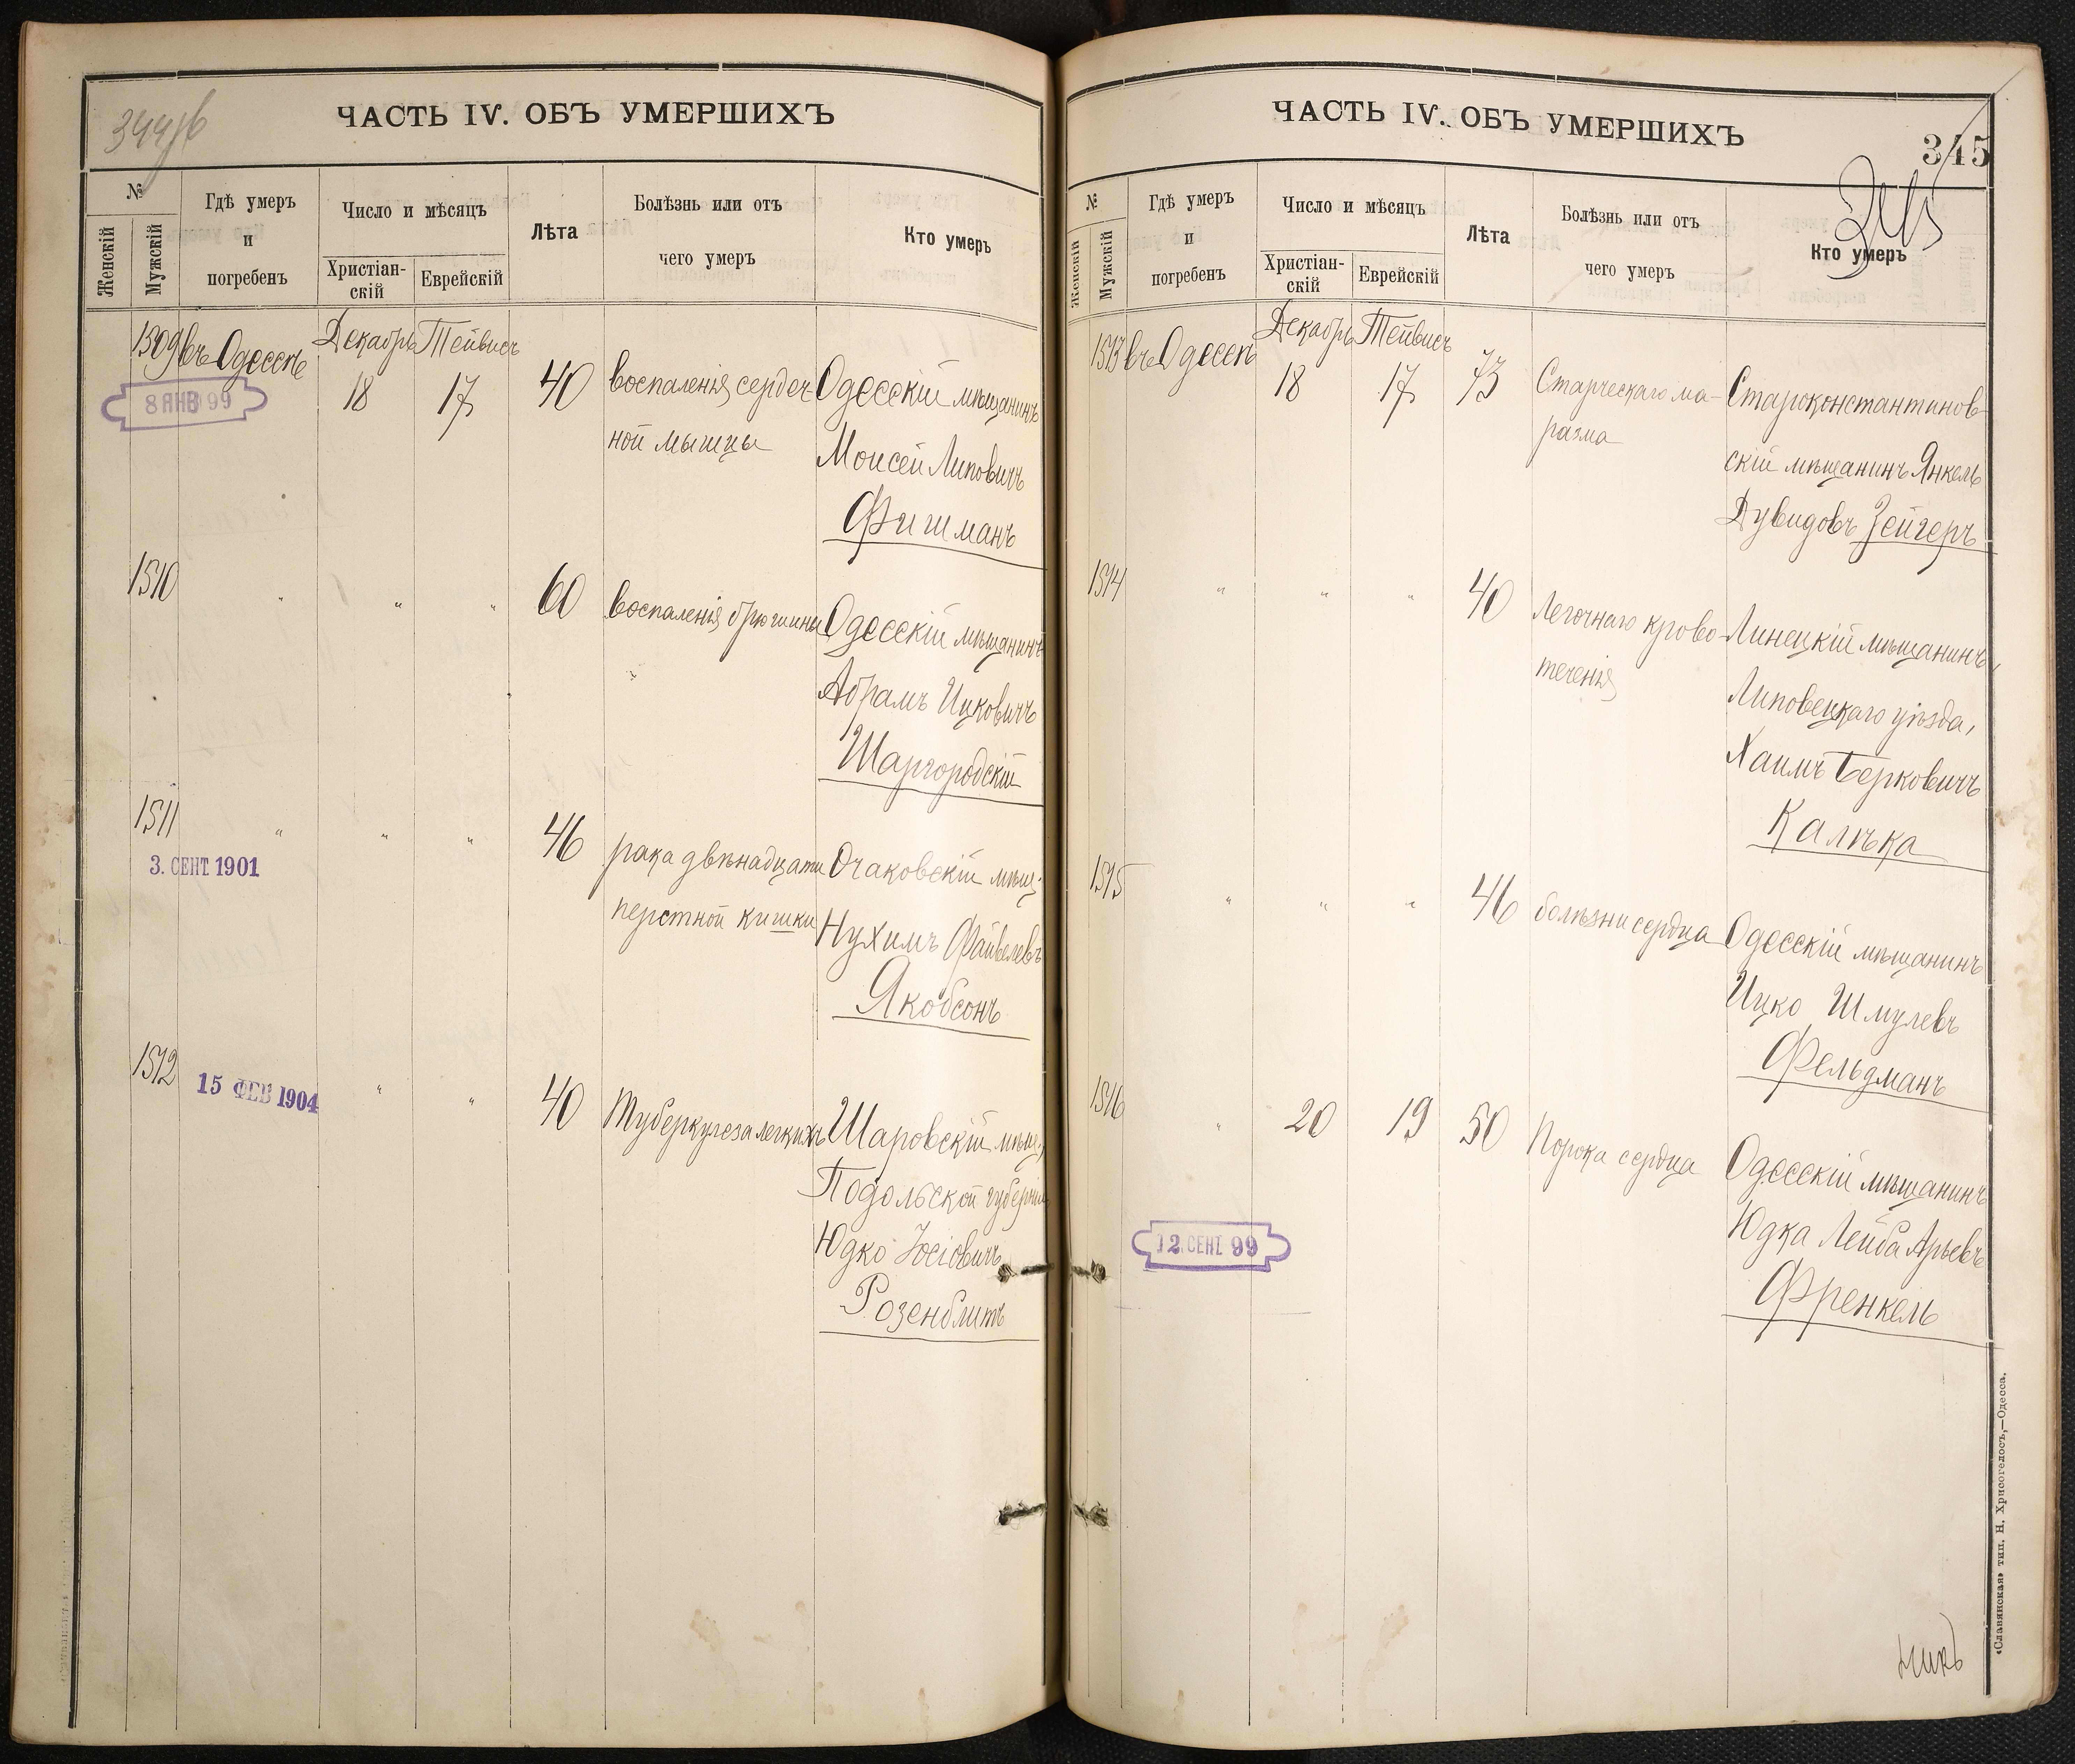 344 об
ЧАСТЬ IV. ОБЪ УМЕРШИХЪ
№
Женскій
Мужскій
Гдѣ умеръ
и
погребенъ
Число и мѣсяцъ
Христіан-
скій
Еврейскій
Лѣта
Болѣзнь или отъ
чего умеръ
Кто умеръ
1509 въ Одессѣ Декабрь 18 Тейвисъ 17 40 воспаленія сердеч Одесскій мѣщанинъ
ной мышцы Моисей Липовичъ
Фишманъ
8 ЯНВ 99
1510 " " " 60 воспаленія брюшины Одесскій мѣщанинъ
Абрамъ Ицковичъ
Шаргородскій
1511 " " " 46 рака двѣнадцати Очаковскій мѣщ.
перстной кишки Нухимъ Файвелевъ
Якобсонъ
3. СЕНТ. 1901
1512 " " 40 Туберкулеза легкихъ Шаровскій мѣщ.,
Подольской губерніи
Юдко Іосіовичъ
Розенблитъ
15 ФЕВ 1904
ЧАСТЬ IV. ОБЪ УМЕРШИХЪ
345
345
№
Женскій
Мужскій
Гдѣ умеръ
и
погребенъ
Число и мѣсяцъ
Христіан-
скій
Еврейскій
Лѣта
Болѣзнь или отъ
чего умеръ
Кто умеръ
1513 въ Одессѣ Декабрь 18 Тейвисъ 17 73 Старческаго ма- Староконстантинов-
разма скій мѣщанинъ Янкель
Дувидовъ Зейгеръ
1514 " " " 40 Легочнаго крово- Линецкій мѣщанинъ,
теченія Липовецкаго уѣзда,
Хаимъ Берковичъ
Калѣка
1515 " " " 46 болѣзни сердца Одесскій мѣщанинъ
Ицко Шмулевъ
Фельдманъ
1516 " 20 19 50 Порока сердца Одесскій мѣщанинъ
Юдка Лейба Арьевъ
Френкель
12. СЕНТ. 99
«Славянская» тип. Н. Хрисогелосъ,—Одесса.